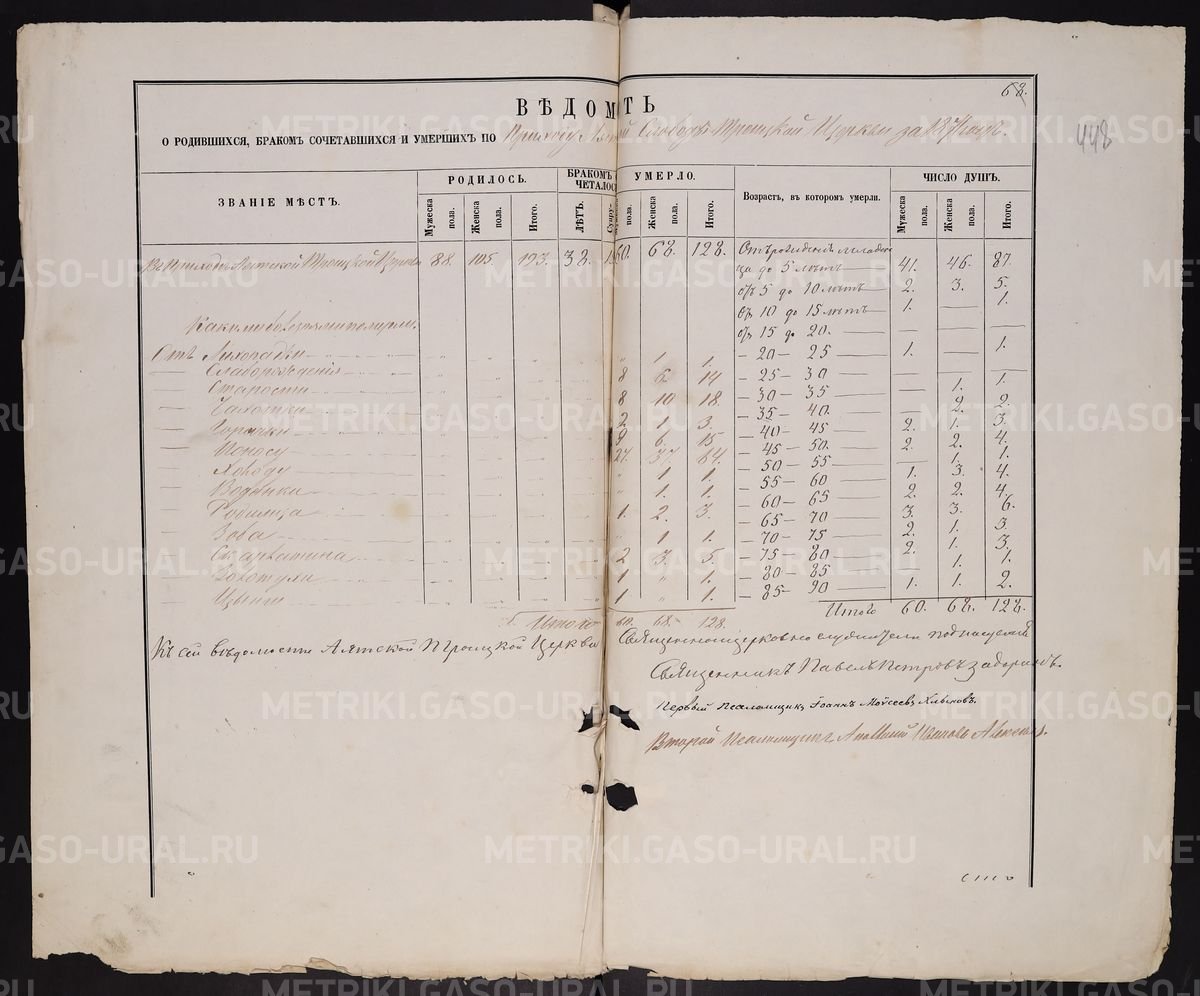 68.
448
ВѢДОМ ТЬ
О РОДИВШИХСЯ, БРАКОМЪ СОЧЕТАВШИХСЯ И УМЕРШИХЪ ПО Приходу Слободѣ Троицкой Церкви за год.
ЗВАНІЕ МѢСТЪ.
РОДИЛОСЬ.
БРАКОМЪ
ЧЕТАЛОС
УМЕРЛО.
Возрастъ, въ которомъ умерли.
ЧИСЛО ДУШЪ.
Мужеска пола. Женска пола. Итого. ЛѢТЪ. Супру- пола. Женска пола. Итого. Мужеска пола. Женска пола. Итого.
Въ Приходѣ Аятской Троицкой Церкви 88. 105 38. 60. 68. 128.
Отъ рожденія младен
ца до 5 лѣтъ 41. 46. 87.
отъ 5 до 10 лѣтъ 2. 3. 5.
отъ 10 до 15 лѣтъ 1. 1.
отъ 15 до 20. — — —
– 20 – 25 1. — 1.
– 25 – 30 — — —
– 30 – 35 — 1. 1.
– 35 – 40. — 2. 2.
– 40 – 45 2. 1. 3.
– 45 – 50. 2. 2. 4.
– 50 – 55 — 1. 1.
– 55 – 60 1. 3. 4.
– 60 – 65 2. 2. 4.
– 65 – 70 3. 3. 6.
– 70 – 75 2. 1. 3.
– 75 – 80 2. 1. 3.
– 80 – 85 1. 1.
– 85 – 90 1. 1. 2.
Итого 60. 68. 128.
Какими болезнями померли.
Отъ Лихорадки " 1. 1.
— Слаборожденія 8 6. 14
— Старости 8 10. 18.
— Чахотки 2 1. 3.
— Горячки 9 6. 15
— Поносу 27. 37. 64.
— Холоду " 1. 1.
— Водянки " 1. 1.
— Родимца 1. 2. 3.
— Зоба " 1. 1.
— Скарлатина 2 3. 5.
— Золотухи 1 " 1.
— Цынги 1 " 1.
Итого 60. 68. 128.
Къ сей вѣдомости Аятской Троицкой Церкви Священноцерковнослужители подписуемся
Священникъ Павелъ Петровъ
Первый Псаломщикъ Іоаннъ Моѵсеевъ Хлыновъ.
Второй Псаломщикъ
METRIKI.GASO-URAL.RU